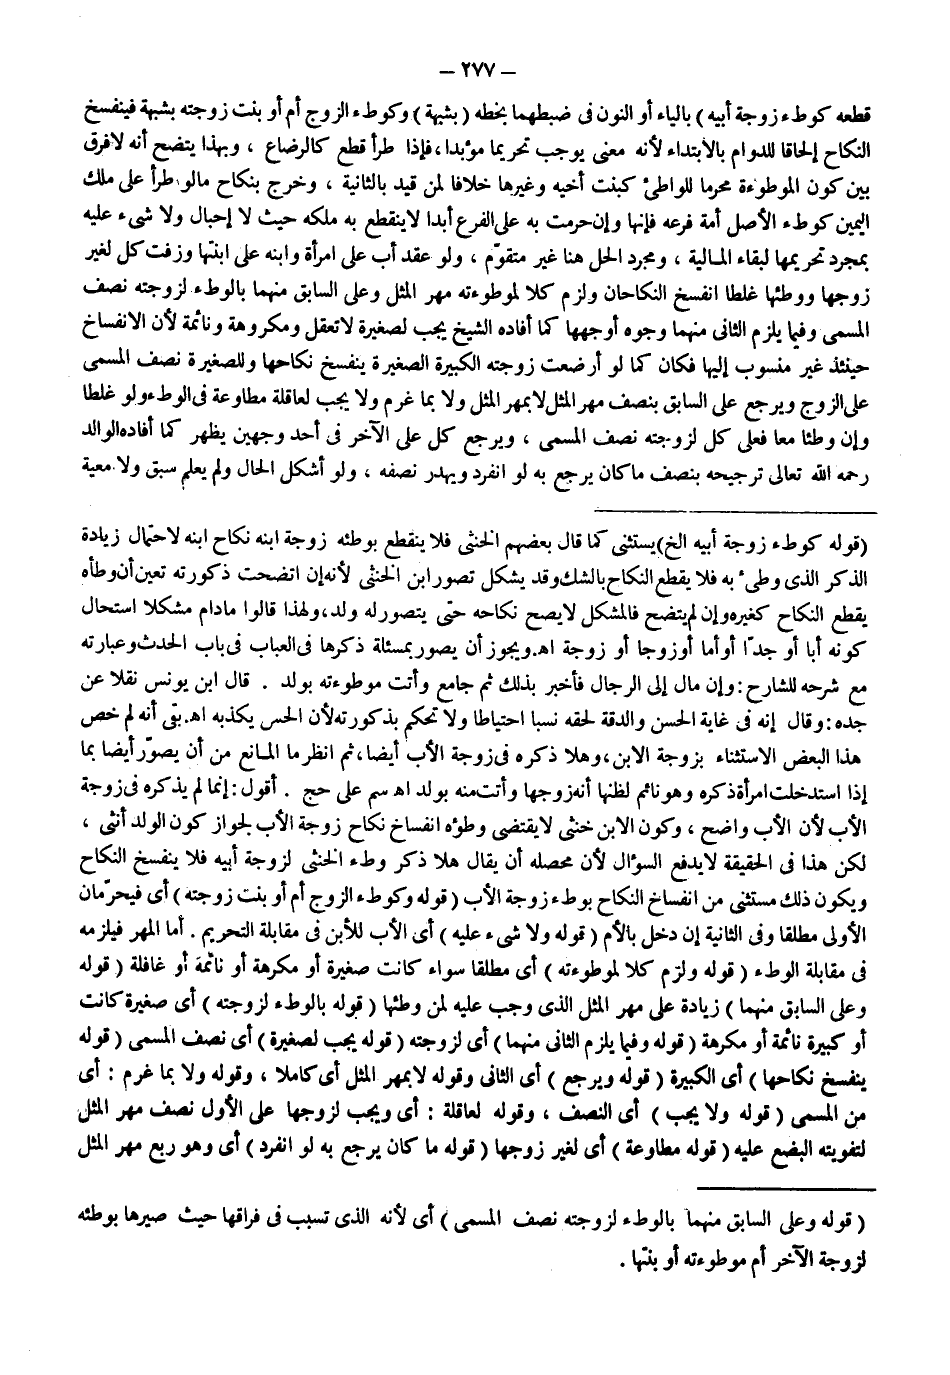 – ٢٧٧ –
قطعه كوطء زوجة أبيه ) بالياء أو النون فى ضبطهما بخطه ( بشبهة ) وكوطء الزوج أم أو بنت زوجته بشبهة فينفسخ
النكاح إلحاقا للدوام بالابتداء لأنه معنى يوجب تحريما مؤبدا ، فإذا طرأ قطع كالرضاع ، وبهذا يتضح أنه لافرق
بين كون الموطوءة محرما للواطئ كبنت أخيه وغيرها خلافا لمن قيد بالثانية ، وخرج بنكاح مالو طرأ على ملك
اليمين كوطء الأصل أمة فرعه فإنها وإن حرمت به على الفرع أبدا لاينقطع به ملكه حيث لا إحبال ولا شىء عليه
بمجرد تحريمها لبقاء المالية ، ومجرد الحل هنا غير متقوّم ، ولو عقد أب على امرأة وابنه على ابنتها وزفت كل لغير
زوجها ووطئها غلطا انفسخ النكاحان ولزم كلا لموطوءته مهر المثل وعلى السابق منهما بالوطء لزوجته نصف
المسمى وفيما يلزم الثانى منهما وجوه أوجهها كما أفاده الشيخ يجب لصغيرة لاتعقل ومكروهة ونائمة لأن الانفساخ
حينئذ غير منسوب إليها فكان كما لو أرضعت زوجته الكبيرة الصغيرة ينفسخ نكاحها وللصغيرة نصف المسمى
على الزوج ويرجع على السابق بنصف مهر المثل لابمهر المثل ولا بما غرم ولا يجب لعاقلة مطاوعة فى الوطء ولو غلطا
وإن وطئا معا فعلى كل لزوجته نصف المسمى ، ويرجع كل على الآخر فى أحد وجهين يظهر كما أفاده الوالد
رحمه الله تعالى ترجيحه بنصف ماكان يرجع به لو انفرد ويهدر نصفه ، ولو أشكل الحال ولم يعلم سبق ولا معية
( قوله كوطء زوجة أبيه الخ) يستثنى كما قال بعضهم الخنثى فلا ينقطع بوطئه زوجة ابنه نكاح ابنه لاحتمال زيادة
الذكر الذى وطئ به فلا يقطع النكاح بالشك وقد يشكل تصور ابن الخنثى لأنه إن اتضحت ذكورته تعين أن وطأه
يقطع النكاح كغيره وإن لم يتضح فالمشكل لايصح نكاحه حتى يتصور له ولد ، ولهذا قالوا مادام مشكلا استحال
كونه أبا أو جدّا أو أما أوزوجا أو زوجة اه. ويجوز أن يصور بمسئلة ذكرها فى العباب فى باب الحدث وعبارته
مع شرحه للشارح : وإن مال إلى الرجال فأخبر بذلك ثم جامع وأتت موطوءته بولد . قال ابن يونس نقلا عن
جده : وقال إنه فى غاية الحسن والدقة لحقه نسبا احتياطا ولا تحكم بذكورته لأن الحس يكذبه اه. بقى أنه لم خص
هذا البعض الاستثناء بزوجة الابن ، وهلا ذكره فى زوجة الأب أيضا ، ثم انظر ما المانع من أن يصوّر أيضا بما
إذا استدخلت امرأة ذكره وهو نائم لظنها أنه زوجها وأتت منه بولد اه سم على حج . أقول : إنما لم يذكره فى زوجة
الأب لأن الأب واضح ، وكون الابن خنثى لايقتضى وطؤه انفساخ نكاح زوجة الأب لجواز كون الولد أنثى ،
لكن هذا فى الحقيقة لايدفع السؤال لأن محصله أن يقال هلا ذكر وطء الخنثى لزوجة أبيه فلا ينفسخ النكاح
ويكون ذلك مستثنى من انفساخ النكاح بوطء زوجة الأب ( قوله وكوطء الزوج أم أو بنت زوجته ) أى فيحرّمان
الأولى مطلقا وفى الثانية إن دخل بالأم ( قوله ولا شىء عليه ) أى الأب للأبن فى مقابلة التحريم . أما المهر فيلزمه
فى مقابلة الوطء ( قوله ولزم كلا لموطوءته ) أى مطلقا سواء كانت صغيرة أو مكرهة أو نائمة أو غافلة ( قوله
وعلى السابق منهما ) زيادة على مهر المثل الذى وجب عليه لمن وطئها ( قوله بالوطء لزوجته ) أى صغيرة كانت
أو كبيرة نائمة أو مكرهة ( قوله وفيما يلزم الثانى منهما ) أى لزوجته ( قوله يجب لصغيرة ) أى نصف المسمى ( قوله
ينفسخ نكاحها ) أى الكبيرة ( قوله ويرجع ) أى الثانى وقوله لابمهر المثل أى كاملا ، وقوله ولا بما غرم : أى
من المسمى ( قوله ولا يجب ) أى النصف ، وقوله لعاقلة : أى ويجب لزوجها على الأول نصف مهر المثل
لتفويته البضع عليه ( قوله مطاوعة ) أى لغير زوجها ( قوله ما كان يرجع به لو انفرد ) أى وهو ربع مهر المثل
( قوله وعلى السابق منهما بالوطء لزوجته نصف المسمى ) أى لأنه الذى تسبب فى فراقها حيث صيرها بوطئه
لزوجة الآخر أم موطوءته أو بنتها .